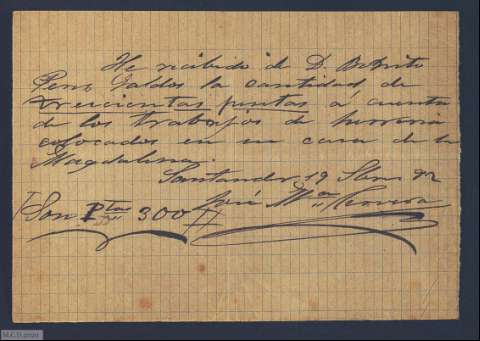 He recibido de D. Benito
Perez Galdos la cantidad de
trescientas pesetas a cuenta
de los trabajos de herreria
colocados en su casa de la
Magdalena.
Santander 19 92
José Mª Herrera
Son Ptas 300